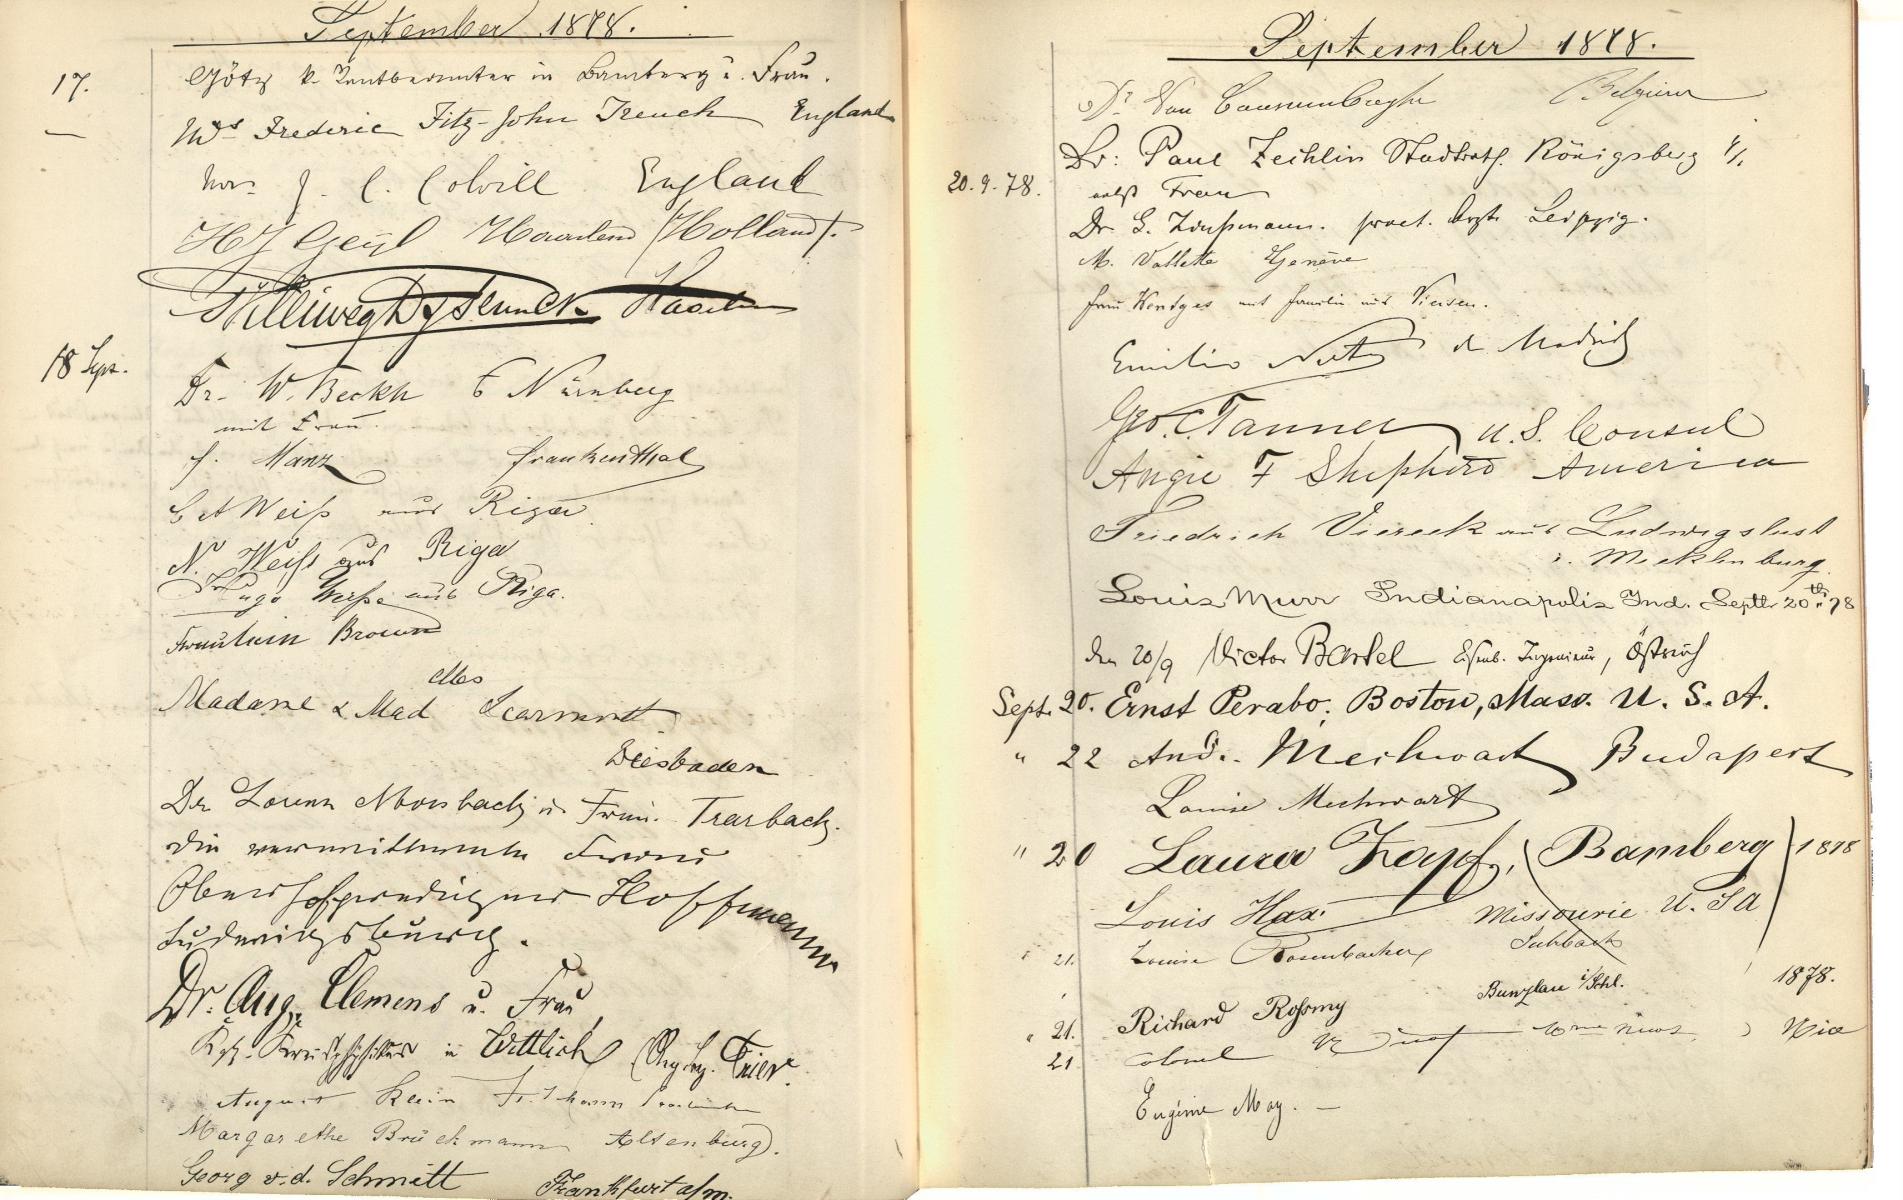 September 1878.
17.
Götz k. Rentbeamter in Bamberg u. Frau.
Mrs Frederic Fitz-John Trench England
Mrs J. C. Colvill England
HJ Geijl Haarlem (Holland).
Haarlem
18 Sept.
Dr. W. Beckh Nürnberg
mit Frau.
f. Manz Frankenthal
C A Weiß aus Riga
N. Weiß aus Riga
Hugo Weiße aus Riga.
Fräulein Brown
Madame & Mad elles
Wiesbaden
Dr Lorenz Morsbach u. Frau. Trarbach.
Die verwittwete Frau
Oberhofprediger Hoffmann
Ludwigsburg.
Dr. Aug. Clemens u. Frau
Kgl. Kreisphysikus in Wittlich (Rgbz. Trier.
August Klein
Margarethe Brückmann Altenburg.
Georg v.d. Schmitt Frankfurt a/m.
September 1878.
Dr Van
Dr: Paul Zechlin Stadtrath. Königsberg
20.9.78.
nebst Frau
Dr G. pract. Arzt Leipzig.
M. Vallette Genève
Frau Kentges mit Familie aus Viersen.
Emilio de Madrid
Geo. C. Tanner U.S. Consul
Angie F Shepherd America
Friedrich Viereck aus Ludwigslust
i. Mecklenburg.
Louis Murr Indianapolis Ind. Septb 20th 78
den 20/9 Victor Bartel Eisenb. Ingenieur, Östreich
Sept. 20. Ernst Perabo, Boston, Mass. U. S. A.
" 22 And. Mechwart Budapest
Louise Mechwart
" 20 Laura Zapf, (Bamberg) 1878
Louis Hax. Missourie U. S A
" 21. Louise Rosenbacker
" 21. Richard Roßmy Bunzlau i/Schl. 1878.
21 Colonel
Eugénie May. —